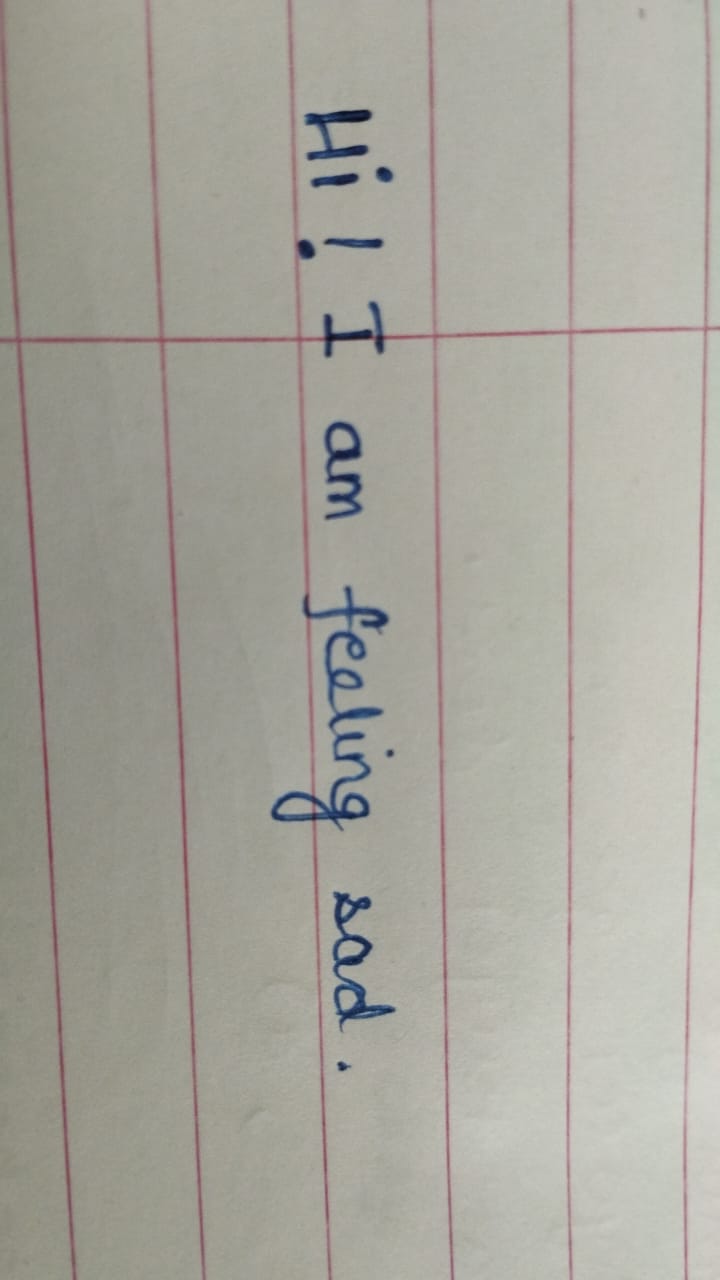 Hi! I am feeling sad.